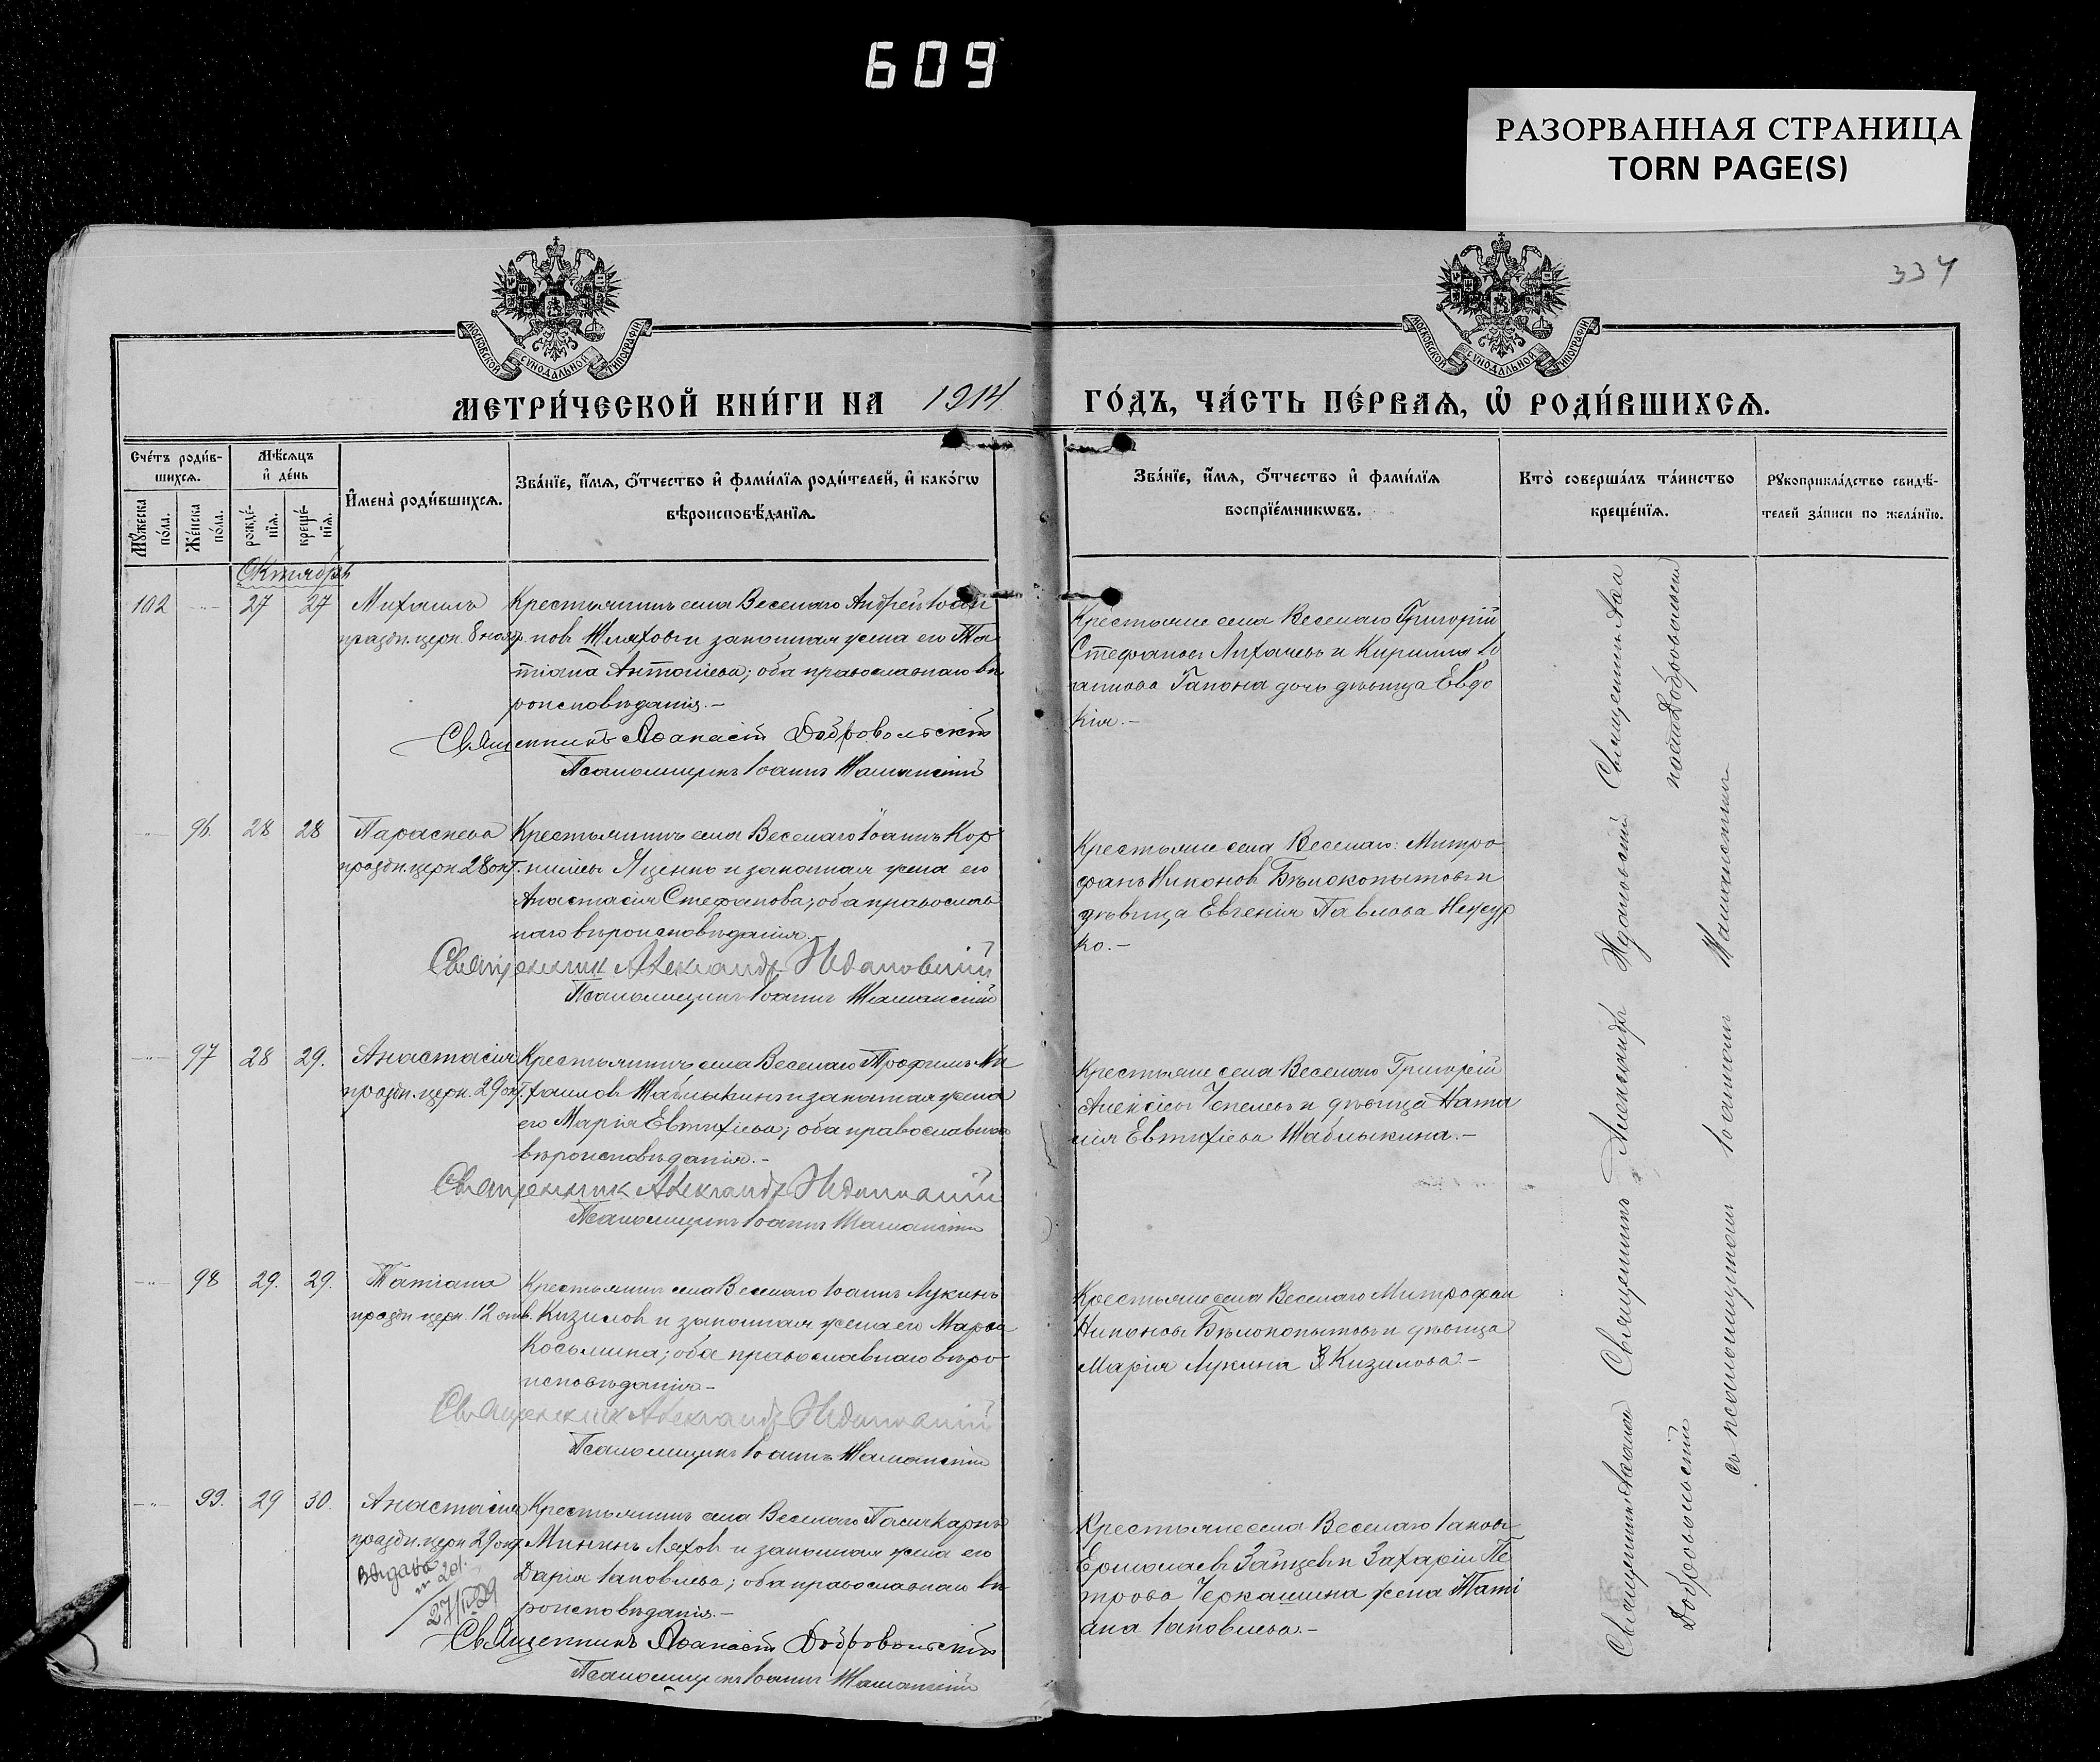 609
РАЗОРВАННАЯ СТРАНИЦА
TORN PAGE(S)
334
МОСКОВСКОЙ СѴНОДАЛЬНОЙ ТИПОГРАФІИ
МОСКОВСКОЙ СѴНОДАЛЬНОЙ ТИПОГРАФІИ
МЕТРИ́ЧЕСКОЙ КНИ́ГИ НА 1914 ГО́ДЪ, ЧА́СТЬ ПЕ́РВАѦ, Ѡ҆ РОДИ́ВШИХСѦ.
Сче́тъ роди́в-
шихсѧ.
Мꙋ́жеска по́ла.
Же́нска по́ла.
Мѣ́сѧцъ
и҆ де́нь
рожде́-
нїѧ.
креще́-
нїѧ.
И҆мена̀ роди́вшихсѧ.
Зва́нїе, и҆́мѧ, ѻ҆́тчество и҆ фами́лїѧ роди́телей, и҆ како́гѡ
вѣроисповѣ́данїѧ.
Зва́нїе, и҆́мѧ, ѻ҆́тчество и҆ фами́лїѧ
воспрїе́мникѡвъ.
Кто̀ соверша́лъ та́инство
креще́нїѧ.
Рꙋкоприкла́дство свидѣ́-
телей за́писи по жела́нїю.
Октябрь
102 27 27 Михаилъ
праздн. церк. 8 нояб.
Крестьянинъ села Веселаго Андрей Іоан
новъ Шляховъ и законная жена его Та
тіана Антоніева; оба православнаго вѣ
роисповѣданія.-
Священникъ Аѳанасій Добровольскій
Псаломщикъ Іоаннъ Шаманскій
Крестьяне села Веселаго Григорій
Стефановъ Лихачевъ и Кирилла Іо
аннова Гапона дочь дѣвица Евдо
кія.-
96. 28 28 Параскева
праздн. церк. 28 окт.
Крестьянинъ села Веселаго Іоаннъ Кор
ниліевъ Яценко и законная жена его
Анастасія Стефанова; оба православ
наго вѣроисповѣданія.-
Священник Александръ Ждановскій
Псаломщикъ Іоаннъ Шаманскій
Крестьяне села Веселаго: Митро
фанъ Никоновъ Бѣлокопытовъ и
дѣвица Евгенія Павлова
ко.-
97 28 29. Анастасія
праздн. церк. 29 окт.
Крестьянинъ села Веселаго Трофимъ Ми
хаиловъ Шаблыкинъ и законная жена
его Марія Евтихіева; оба православнаго
вѣроисповѣданія.-
Священник Александръ Ждановскій
Псаломщикъ Іоаннъ Шаманскій
Крестьяне села Веселаго Григорій
Алексіевъ Чепелевъ и дѣвица Ната
лія Евтихіева Шаблыкина.-
98 29. 29. Татіана
праздн. церк. 12 янв.
Крестьянинъ села Веселаго Іоаннъ Лукинъ
Кизиловъ и законная жена его Марѳа
Косьмина; оба православнаго вѣро
исповѣданія-
Священник Александръ Ждановскій
Псаломщикъ Іоаннъ Шаманскій
Крестьяне села Веселаго Митрофан
Никоновъ Бѣлокопытовъ и дѣвица
Марія Лукина Кизилова.-
99. 29 30. Анастасія
праздн. церк 29 окт
Выдана
27/IV-29
Крестьянинъ села Веселаго Поликарпъ
Мининъ Ляховъ и законная жена его
Дарія Іаковлева; оба православнаго вѣ
роисповѣданія.-
Священникъ Аѳанасій Добровольскій
Псаломщикъ Іоаннъ Шаманскій
Крестьяне села Веселаго Іаковъ
Ермолаевъ Зайцевъ и Захаріи Пе
трова Черкашина жена Таті
ана Іаковлева.-
Священникъ Аѳанасій
Добровольскій
Священникъ Александръ Ждановскій
Священникъ Аѳа
насій Добровольскій
съ псаломщикомъ Іоанномъ Шаманскимъ